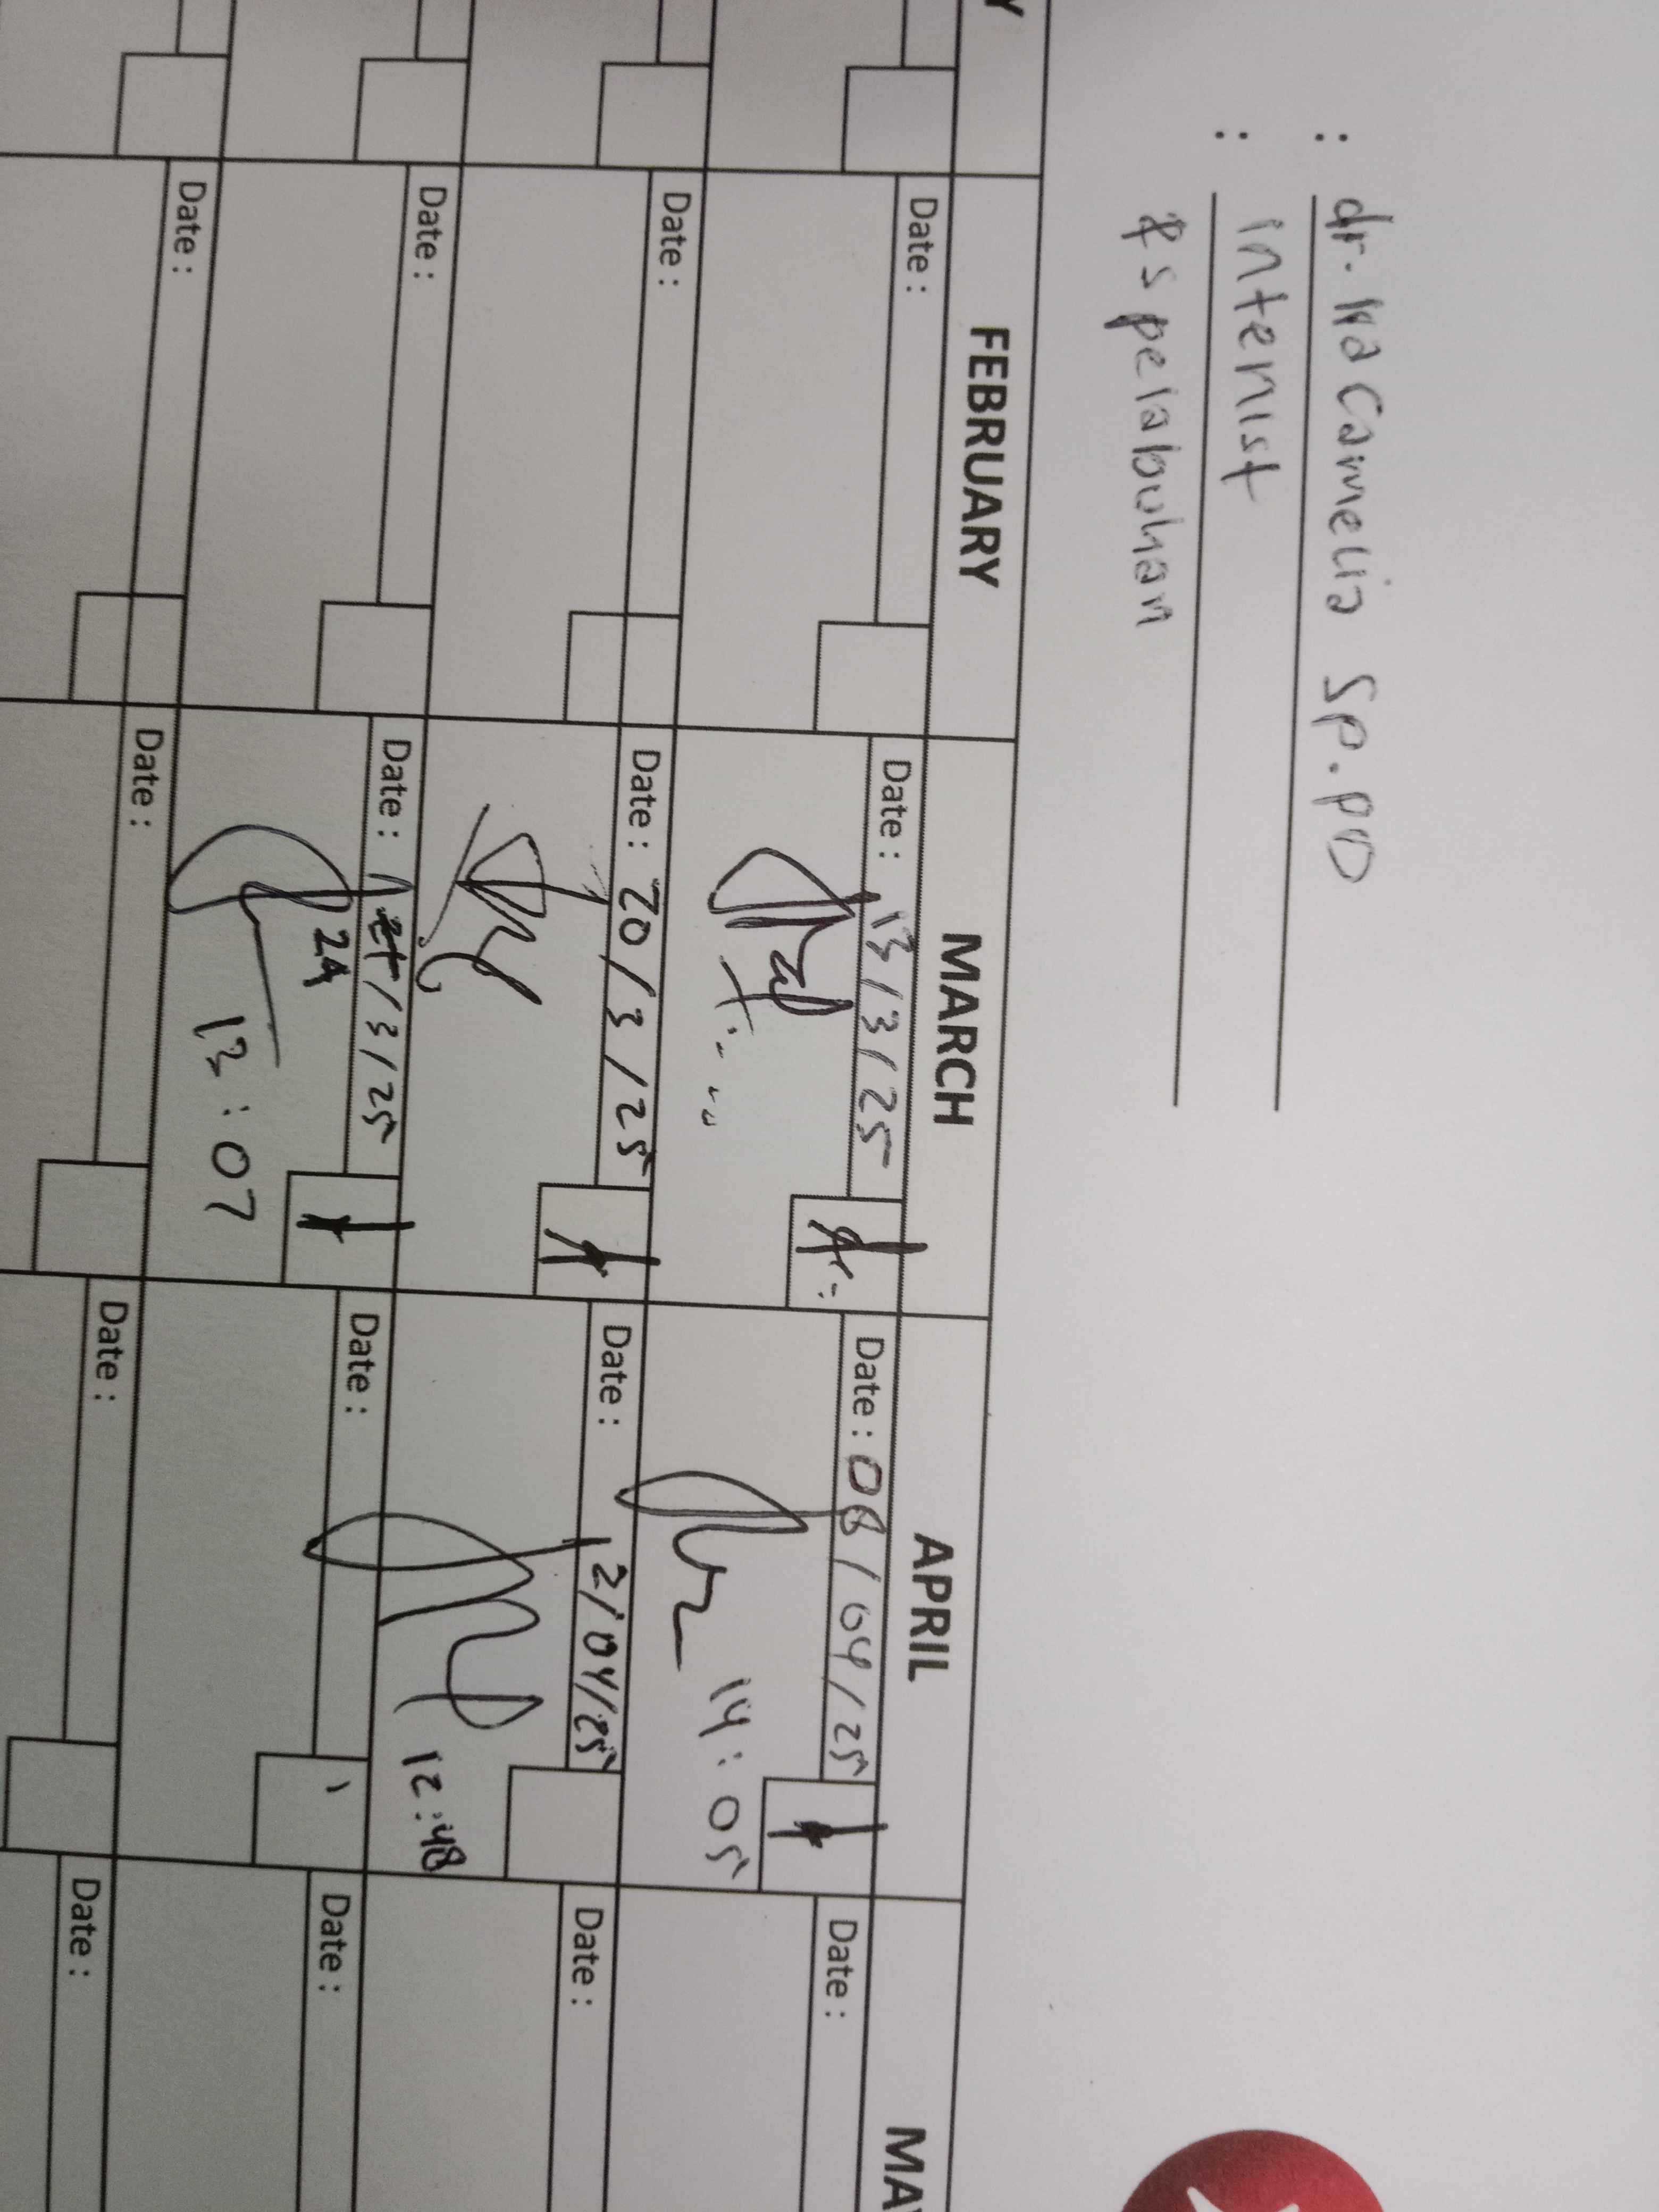 : dr. Ira Camelia Sp.PD
: internist
RS pelabuhan
Y
FEBRUARY
MARCH
APRIL
MAY
Date :
Date : 13/3/25
Date : 08/04/25
14:05
Date :
Date :
Date : 20/3/25
Date : 12/04/25
12:48
Date :
Date :
Date : 21/3/25
24
13:07
Date :
Date :
Date :
Date :
Date :
Date :